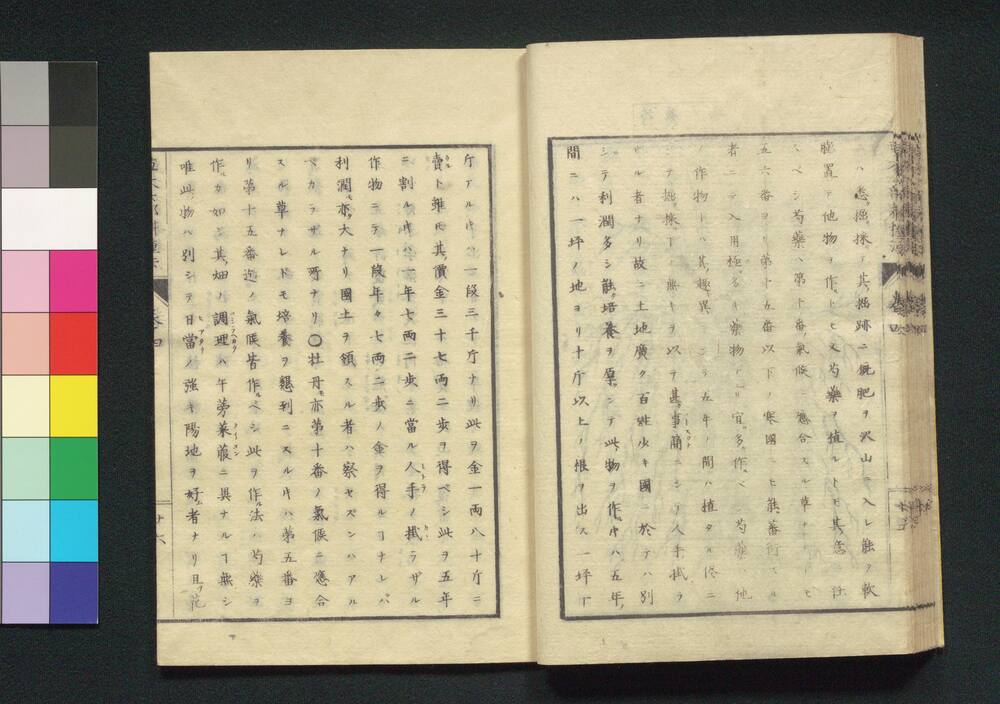 ハ悉ク掘採テ其掘跡ニ糞肥ヲ沢山ニ入レ能ク軟
膨置テ他物ヲ作ルトモ又芍藥ヲ植ルトモ其意ニ任
スベシ芍藥ハ第十番ノ氣候ニ應合スル草ナレトモ
五六番ヨリ第十五番以下ノ寒國ニモ能蕃衍スル
者ニテ入用極テ多キ藥物ナリ宜ク多作ベシ芍藥ハ他
ノ作物トハ其極異ニシテ五年ノ間ハ植タル儘ニ
シテ掘採コト無キヲ以テ甚事簡ニシテ人手拭ラ
ザル者ナリ故ニ土地廣ク百姓少キ國ニ於テハ別
シテ利潤多シ能培養ヲ厚シテ此物ヲ作ル片ハ五年ノ
間ニハ一坪ノ地ヨリ十斤以上ノ根ヲ出ス一坪十
斤アル片ハ一段三千斤ナリ此ヲ金一両八十斤ニ
賣ト雖モ其價金三十七両二歩ヲ得ベシ此ヲ五年
ニ割ル片ハ一年七両二歩ニ當ル人手ノ拭ラザル
作物ニテ一段年々七両二歩ノ金ヲ得ルコナレバ
利潤モ亦大ナリ國土ヲ領スル者ハ察セズンハアル
ベカラザル所ナリ○牡丹モ亦第十番ノ氣候ニ應合
スル草ナレドモ培養ヲ懇到ニスル片ハ第五番ヨ
リ第十五番迄ノ氣候皆作ルベシ此ヲ作ル法ハ芍藥ヲ
作ルカ如シ其畑ノ調理ハ午蒡莱菔ニ異ナルコ無シ
唯此物ハ別シテ日當ノ強キ陽地ヲ好ム者ナリ且ツ花
巻四
十六